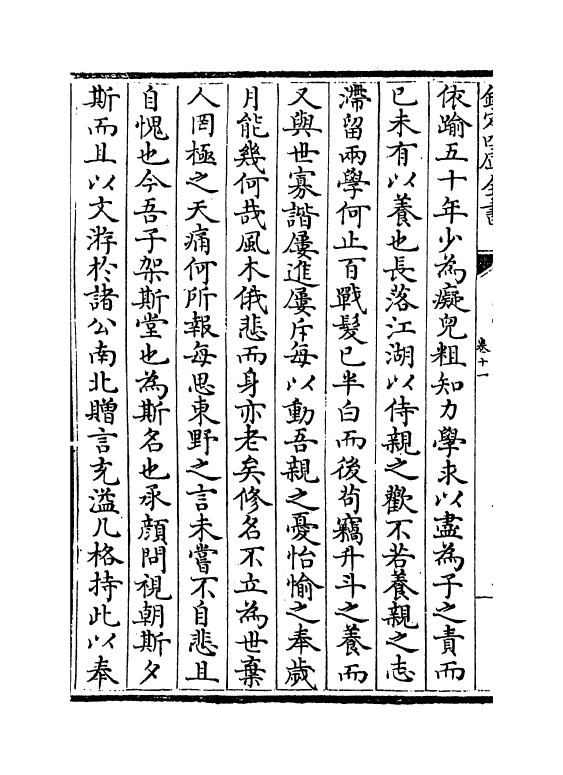 欽定四庫全書
卷十一
依踰五十年少為癡兒粗知力學未以盡為子之責而
已未有以養也長落江湖以侍親之歡不若養親之志
滯留兩學何止百戰髮已半白而後茍竊升斗之養而
又與世寡諧屢進屢斥每以動吾親之憂怡愉之奉歲
月能幾何哉風木俄悲而身亦老矣修名不立為世棄
人罔極之天痛何所報每思東野之言未嘗不自悲且
自愧也今吾子架斯堂也為斯名也承顔問視朝斯夕
斯而且以文游於諸公南北贈言充溢几格持此以奉